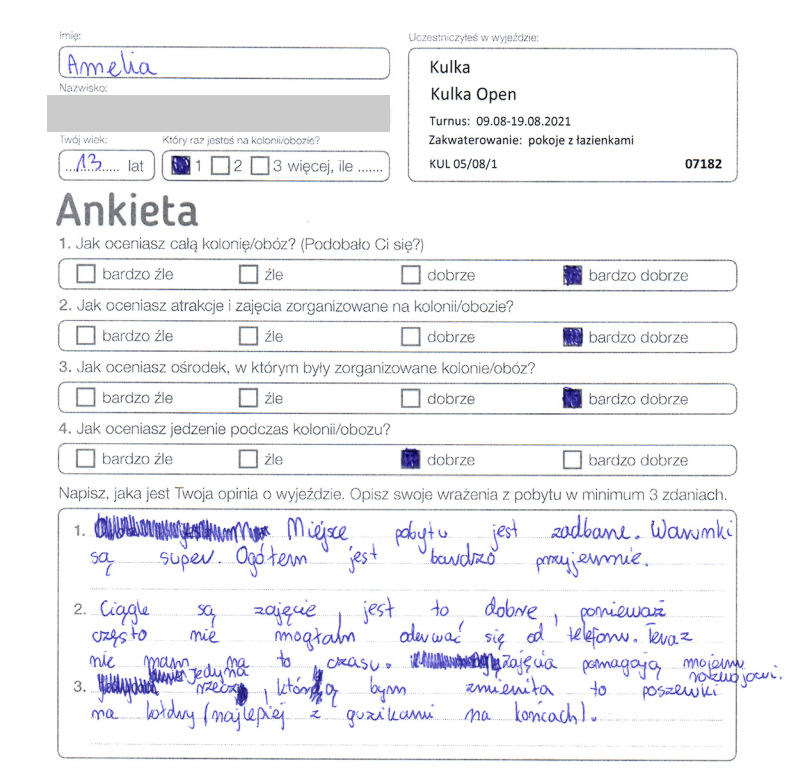 Imię:
Amelia
Nazwisko:
Twój wiek:
13 lat
Który raz jesteś na kolonii/obozie?
1 2 3 więcej, ile .......
Uczestniczyłeś w wyjeździe:
Kulka
Kulka Open
Turnus: 09.08-19.08.2021
Zakwaterowanie: pokoje z łazienkami
KUL 05/08/1 07182
Ankieta
1. Jak oceniasz całą kolonię/obóz? (Podobało Ci się?)
bardzo źle źle dobrze bardzo dobrze
2. Jak oceniasz atrakcje i zajęcia zorganizowane na kolonii/obozie?
bardzo źle źle dobrze bardzo dobrze
3. Jak oceniasz ośrodek, w którym były zorganizowane kolonie/obóz?
bardzo źle źle dobrze bardzo dobrze
4. Jak oceniasz jedzenie podczas kolonii/obozu?
bardzo źle źle dobrze bardzo dobrze
Napisz, jaka jest Twoja opinia o wyjeździe. Opisz swoje wrażenia z pobytu w minimum 3 zdaniach.
1. Miejsce pobytu jest zadbane. Warunki
są super. Ogółem jest bardzo przyjemnie.
2. Ciągle są zajęcie, jest to dobre, ponieważ
często nie mogłam oderwać się od telefonu. Teraz
nie mam na to czasu. Zajęcia pomagają mojemu
rozwojowi.
3. jedyna rzecz, którą bym zmieniła to poszewki
na kołdry (najlepiej z guzikami na końcach).